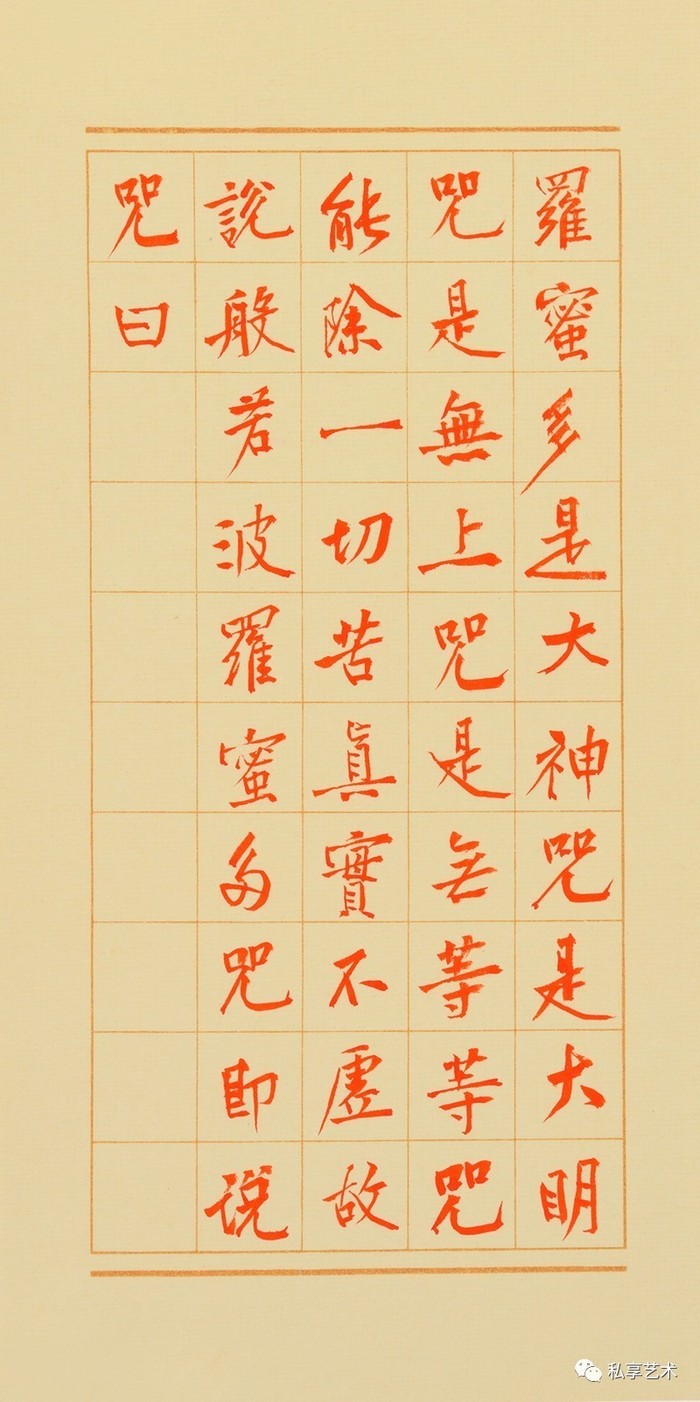 羅蜜多是大神咒是大明
咒是無上咒是无等等咒
能除一切苦真實不虛故
說般若波羅蜜多咒即说
咒曰
私享艺术